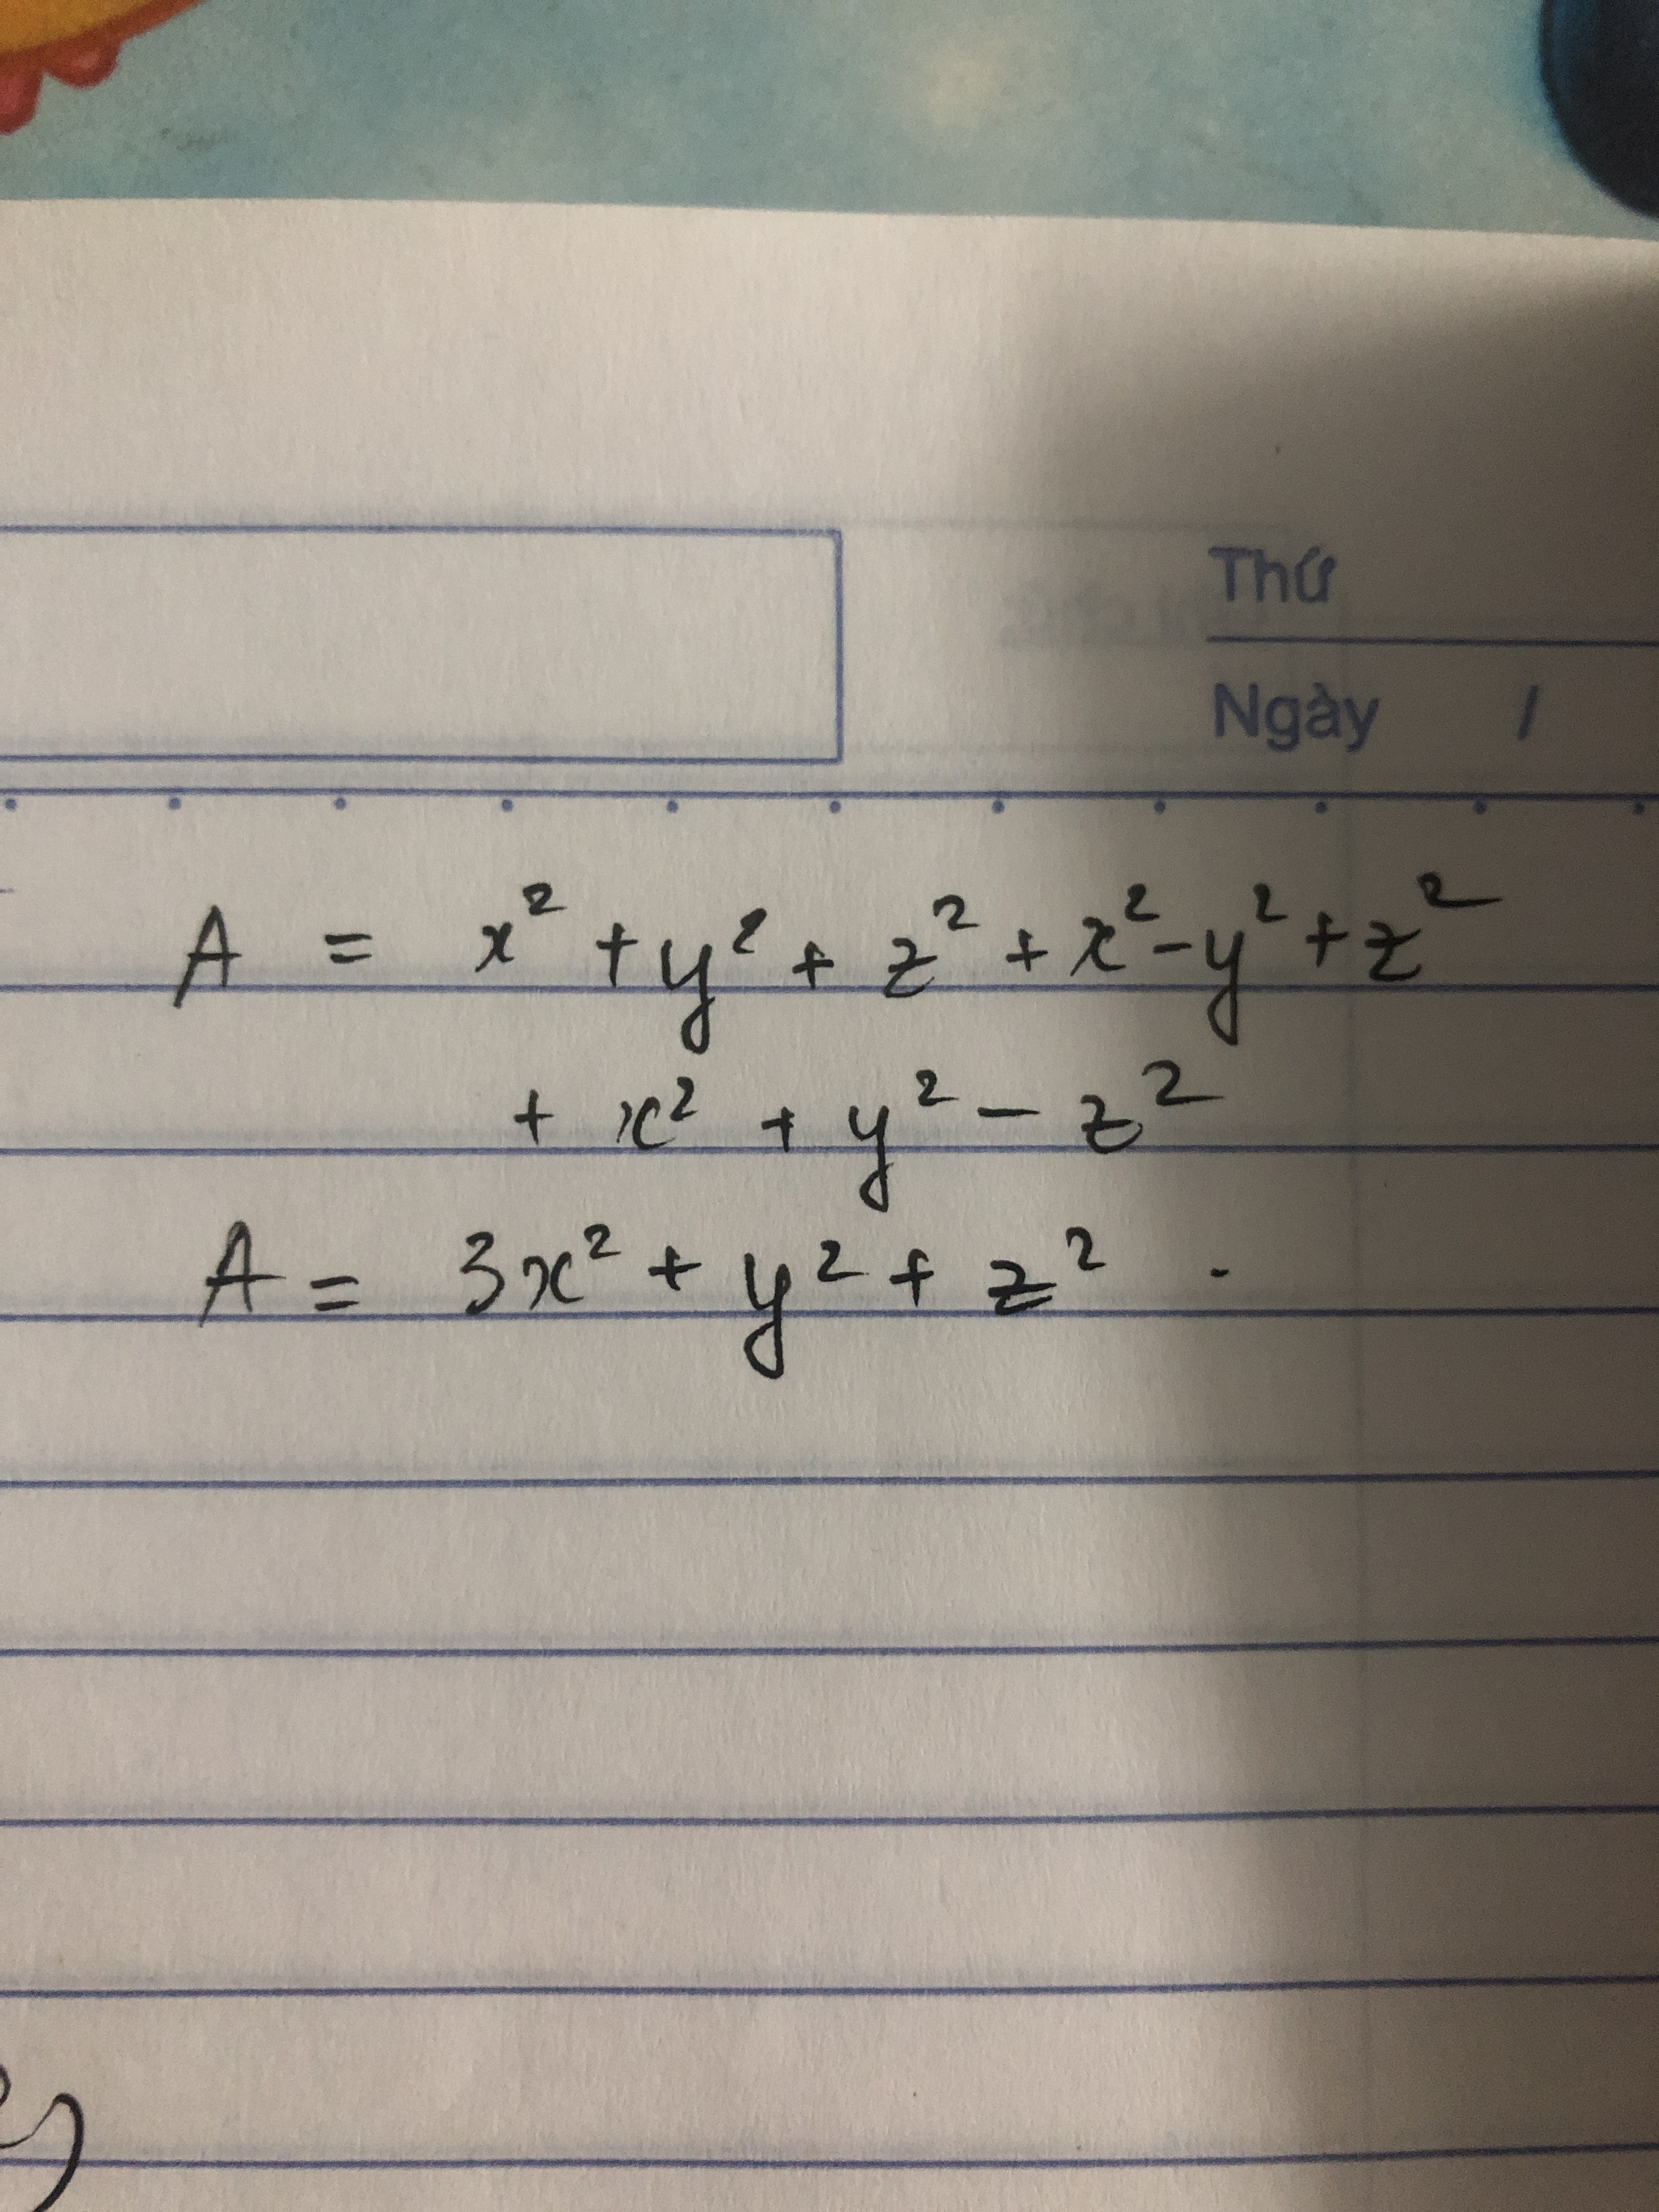 Thứ
Ngày /
A = x² + y² + z² + x² - y² + z²
+ x² + y² - z²
A = 3x² + y² + z² .